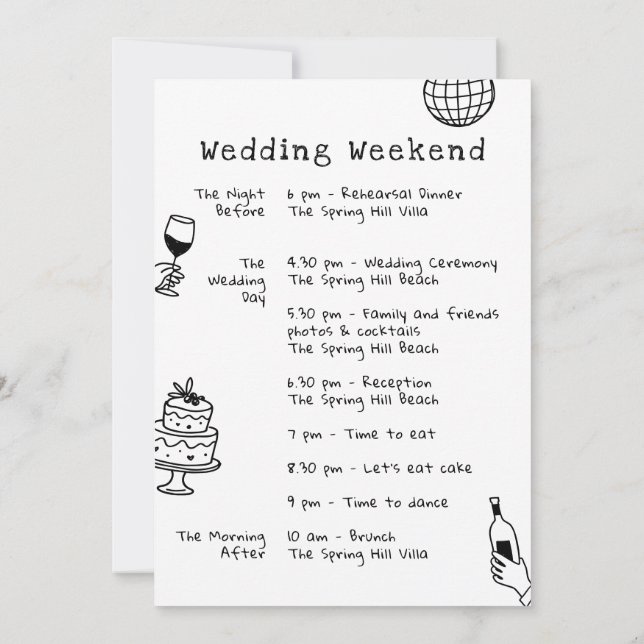 Wedding Weekend
The Night
Before
6 pm - Rehearsal Dinner
The Spring Hill Villa
The
Wedding
Day
4.30 pm - Wedding Ceremony
The Spring Hill Beach
5.30 pm - Family and friends
photos & cocktails
The Spring Hill Beach
6.30 pm - Reception
The Spring Hill Beach
7 pm - Time to eat
8.30 pm - Let's eat cake
9 pm - Time to dance
The Morning
After
10 am - Brunch
The Spring Hill Villa